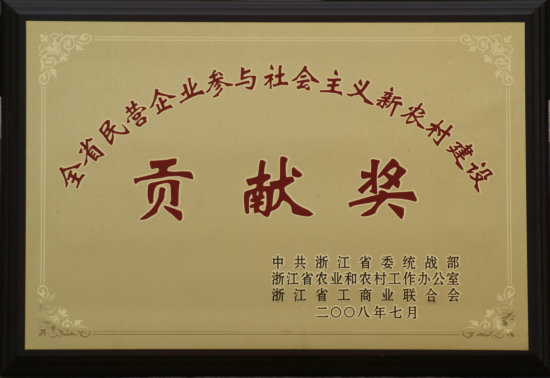 全省民营企业参与社会主义新农村建设
贡献奖
中共浙江省委统战部
浙江省农业和农村工作办公室
浙江省工商业联合会
二〇〇八年七月